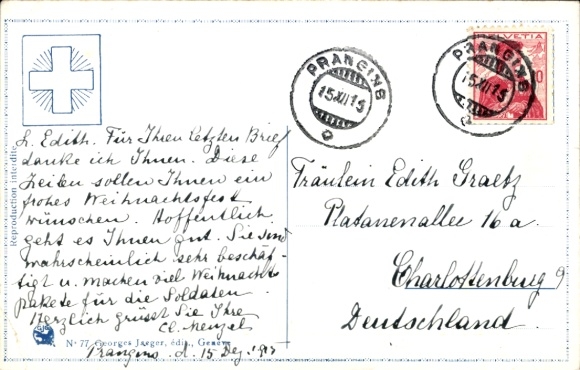 Reproduction interdite
L. Edith. Für Ihren letzten Brief
danke ich Ihnen. Diese
Zeilen sollen Ihnen ein
frohes Weihnachtsfest
wünschen. Hoffentlich
geht es Ihnen gut. Sie sind
wahrscheinlich sehr beschäf-
tigt u. machen viel Weihnachts
pakete für die Soldaten.
Herzlich grüsst Sie Ihre
Cl. Menzel
Nº 77 Georges Jaeger, édit., Genève
Prangins. d. 15 Dez.
PRANGINS
15.XII.15
PRANGINS
15.XII.15
HELVETIA
10
Fräulein Edith Graetz
Platanenallee 16 a.
Charlottenburg 9
Deutschland.